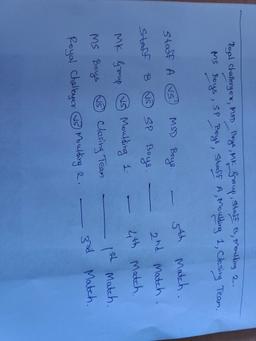 Royal Challenger, MSD Boys, MK Group, Staff B, Moulding 2.
MS Boys, SP Boys, Staff A, Moulding 1, Closing Team.
Staff A VS MSD Boys — 5th Match.
Staff B VS SP Boys — 2nd Match.
MK Group VS Moulding 1 — 4th Match.
MS Boys VS Closing Team — 1st Match.
Royal Challenger VS Moulding 2. — 3rd Match.